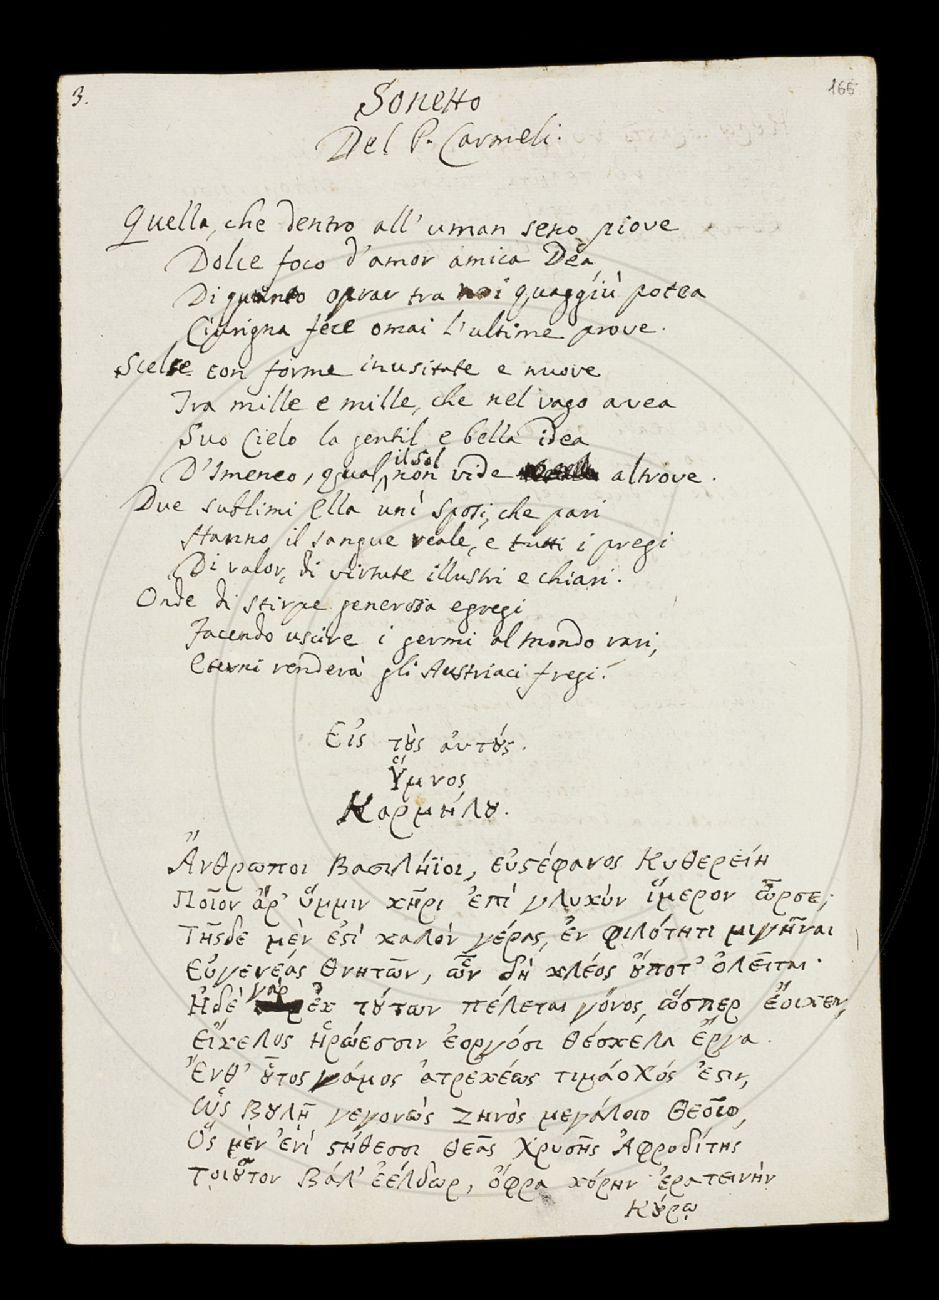 3.
166
Sonetto
Del P. Carmeli.
Quella, che dentro all' uman seno piove
Dolce foco d'amor amica Dea
Di quanto oprar tra noi quaggiù potea
Ciprigna fece omai l'ultime prove.
Scelse con forme inusitate e nuove
Tra mille e mille, che nel vago avea
Suo Cielo la gentil e bella idea
D'Imeneo, qual il Sol non vide altrove.
Due sublimi Ella unì sposi, che pari
Hanno il sangue reale, e tutti i pregi
Di valor, di virtute illustri e chiari.
Onde di stirpe generosa egregi
Facendo uscire i germi al mondo rari,
Eterni renderà gli Austriaci fregi.
Εἰς τȣ̀ς αὐτȣ́ς.
Ὕμνος
Καρμήλȣ.
Ἄνθρωποι Βασιλήϊοι, εὐϛέφανος Κυθερείη
Ποῖον ἂρ' ὔμμιν κῆρι ἐπὶ γλυκὺν ἵμερον ὦρσε;
Τῆσδε μὲν ἐϛὶ καλὸν γέρας, ἐν φιλότητι μιγῆναι
Εὐγενέας θνητῶν, ὧν δὴ κλέος ȣ̓́ποτ' ὀλεῖται·
Ἠδὲ γὰρ ἐκ τȣ́των πέλεται γόνος, ὥσπερ ἔοικεν,
Εἴκελος ἡρώεσσιν ἐοργόσι θέσκελα ἔργα.
Ἔνθ' ȣ̔͂τος γάμος ἀτρεκέως τιμάοχός ἐϛιν,
Ὡς Βȣλῇ γεγονὼς Ζηνὸς μεγάλοιο θεοῖο,
Ὃς μὲν ἐνὶ ϛήθεσσι θεᾶς χρυσῆς Ἀφροδίτης
Τοιȣ͂τον βάλ' ἐέλδωρ, ὄφρα κόρην ἐρατεινὴν
Κȣ́ρῳ